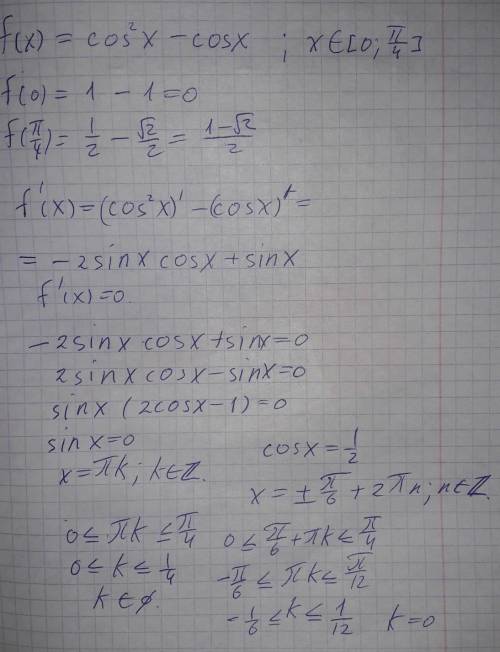 f(x) = cos²x − cosx ; x∈[0; π/4]
f(0) = 1 − 1 = 0
f(π/4) = 1/2 − √2/2 = (1−√2)/2
f'(x) = (cos²x)' − (cosx)' =
= −2sinx cosx + sinx
f'(x)=0.
−2sinx cosx + sinx = 0
2sinx cosx − sinx = 0
sinx (2cosx − 1) = 0
sinx = 0
x = πk; k∈Z.
cosx = 1/2
x = ± π/6 + 2πn; n∈Z.
0 ≤ πk ≤ π/4
0 ≤ k ≤ 1/4
k ∈ ∅.
0 ≤ π/6 + πk ≤ π/4
−π/6 ≤ πk ≤ π/12
−1/6 ≤ k ≤ 1/12 k=0